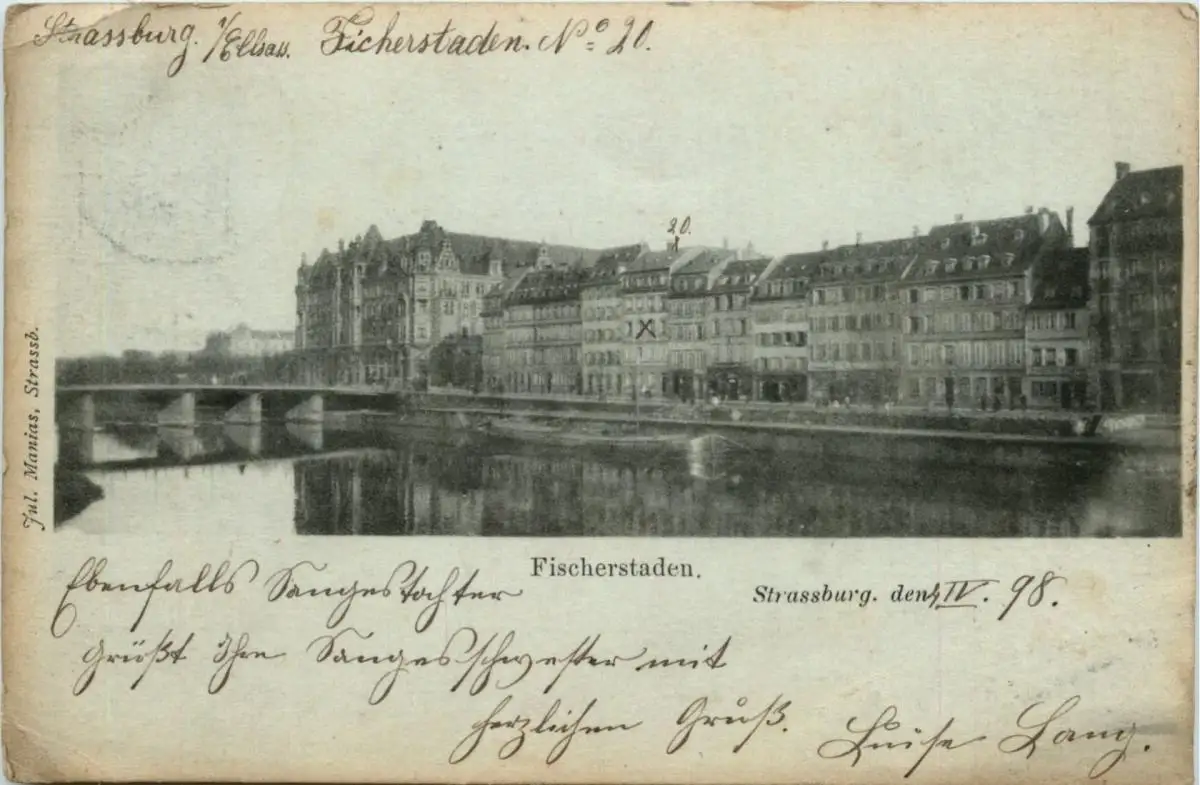 Strassburg. i/Elsass. Ficherstaden. No 20.
20.
X
Jul. Manias, Strassb.
Fischerstaden.
Strassburg. den 4 IV. 98.
Ebenfalls Sangestochter
grüßt Ihre Sangesschwester mit
herzlichen Gruß. Luise Lang.